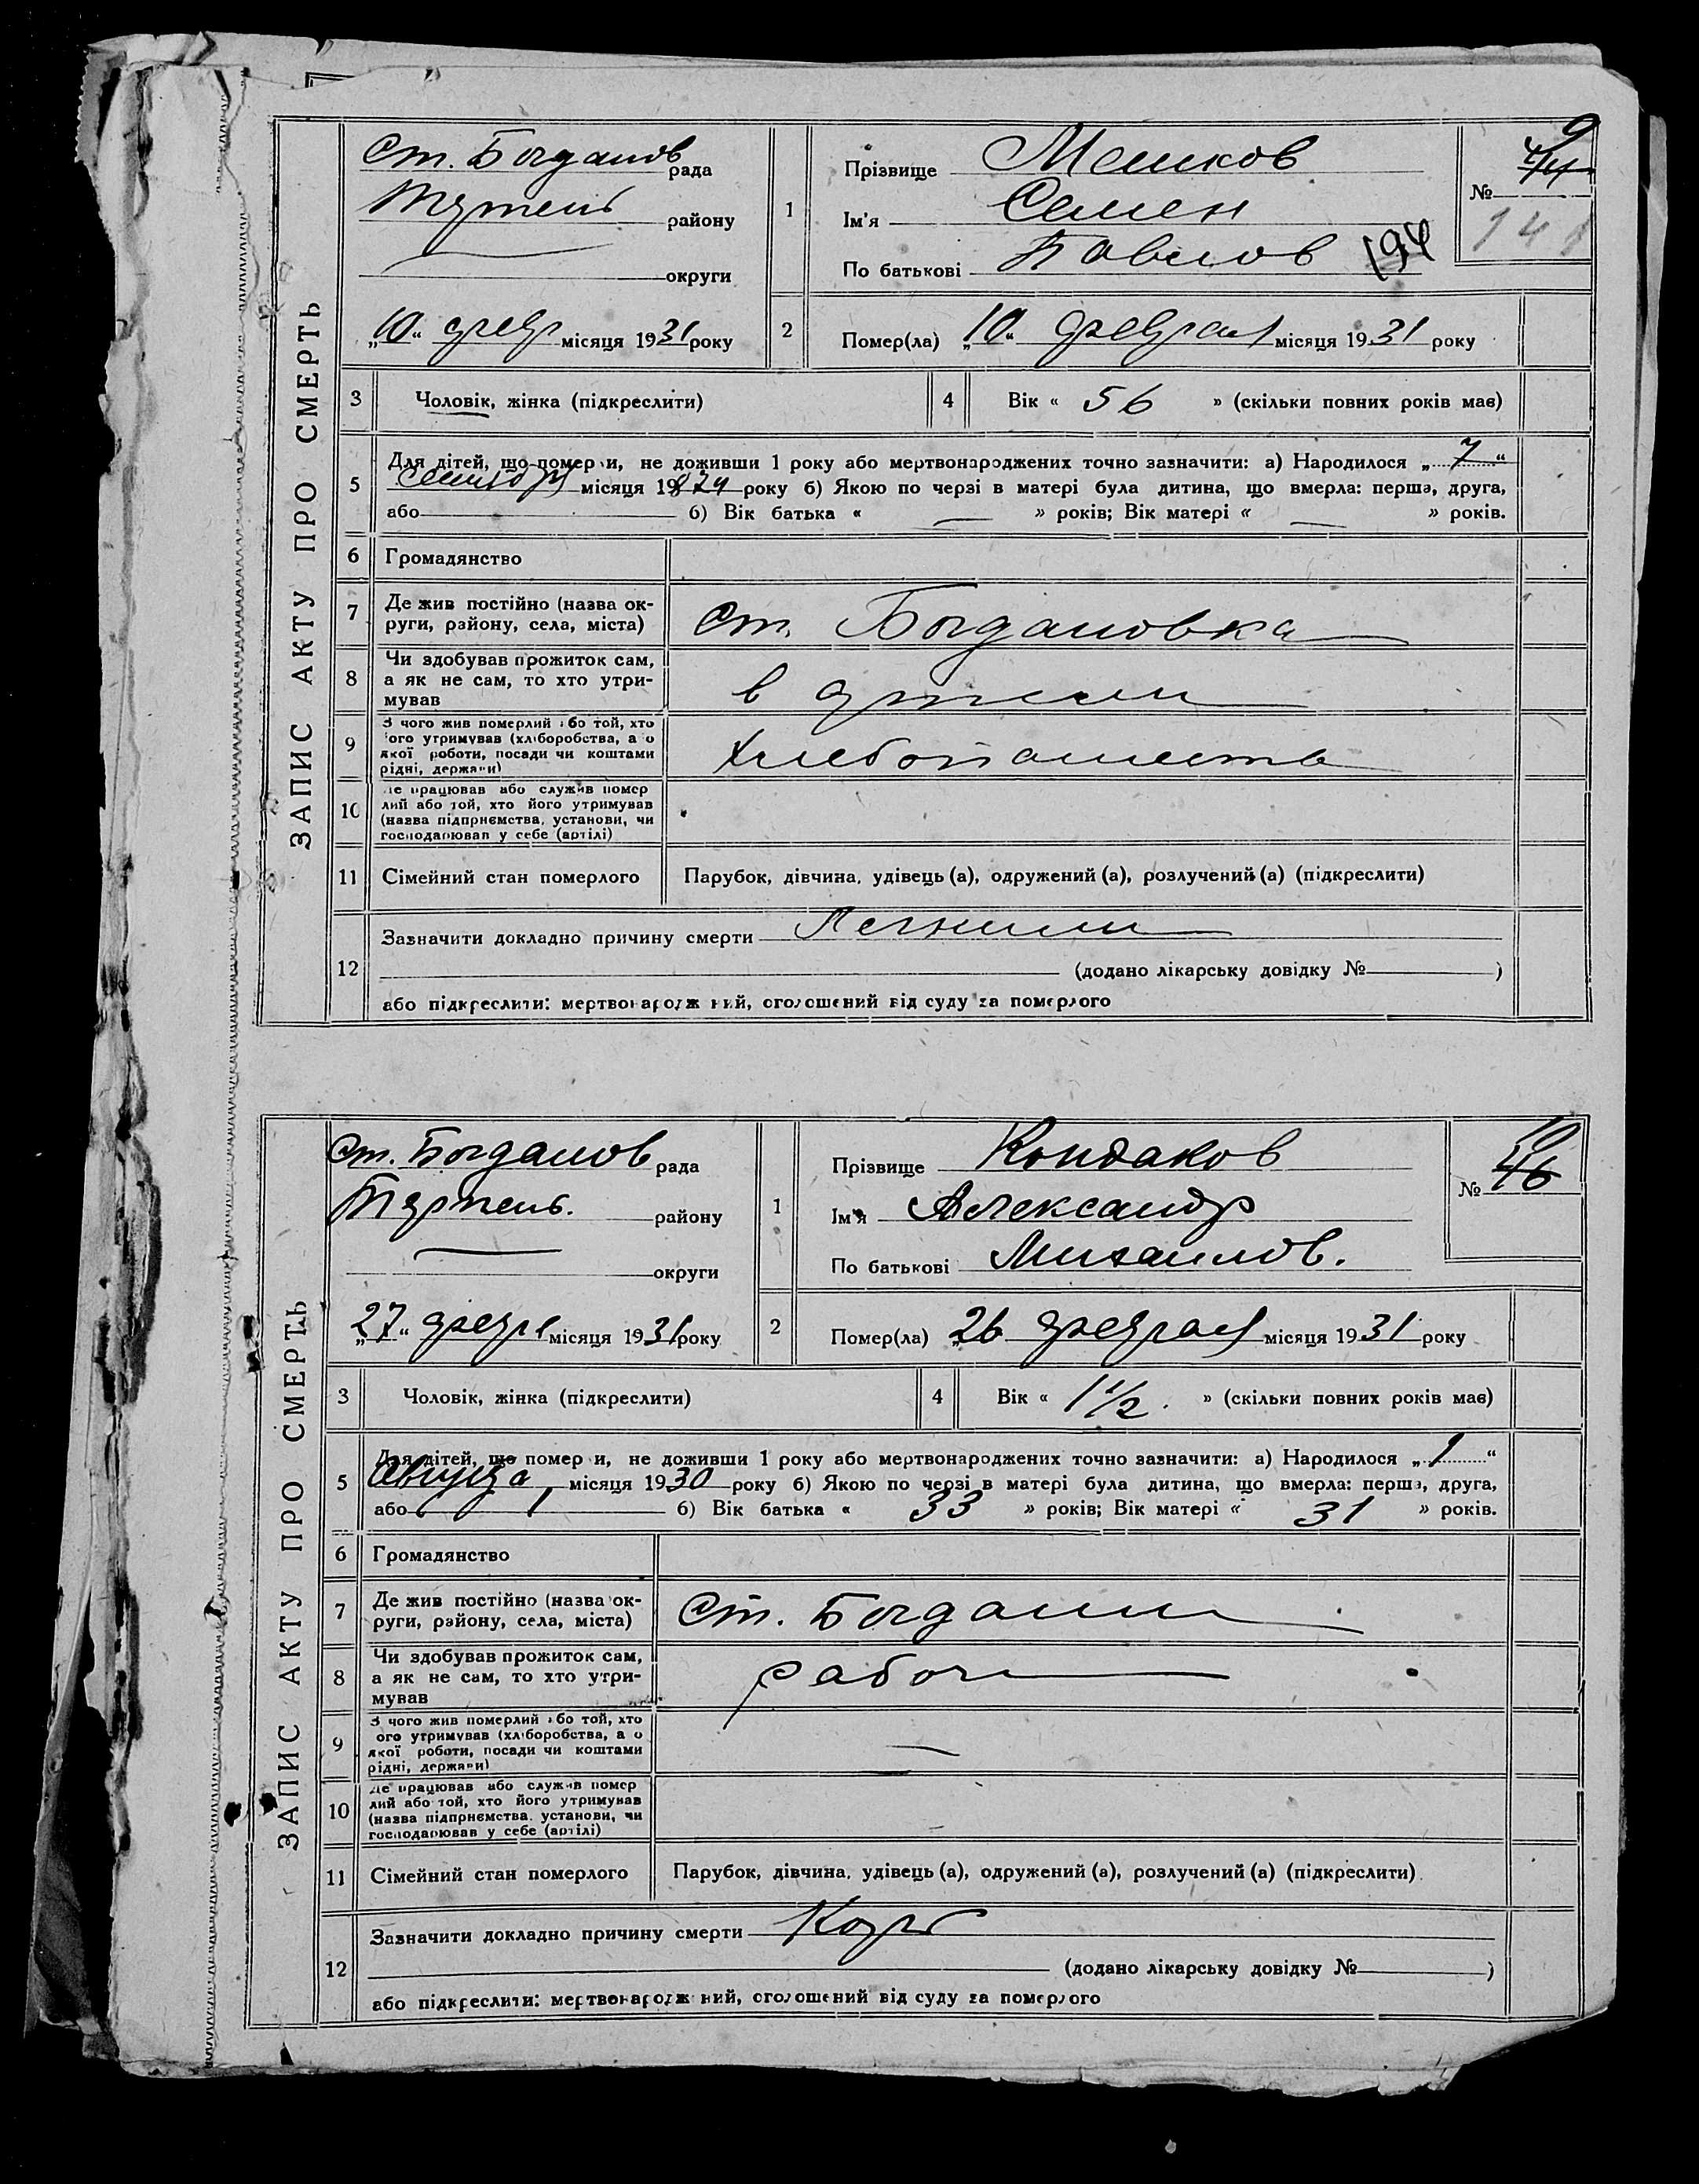 ЗАПИС АКТУ ПРО СМЕРТЬ
Ст. Богданов рада
району
округи
"10" февр місяця 1931 року
1
Прізвище Мешков
Ім'я Семен
По батькові Павлов 194
№ 44 9
141
2 Помер(ла) "10" февраля місяця 1931 року
3 Чоловік, жінка (підкреслити)
4 Вік « 56 » (скільки повних років має)
5 Для дітей, що помер и, не доживши 1 року або мертвонароджених точно зазначити: а) Народилося „ 7 “
місяця 1874 року б) Якою по черзі в матері була дитина, що вмерла: перша, друга,
або б) Вік батька « — » років; Вік матері « — » років.
6 Громадянство
7 Де жив постійно (назва ок-
руги, району, села, міста) Ст. Богдановка
8 Чи здобував прожиток сам,
а як не сам, то хто утри-
мував в артели
9 З чого жив померлий або той, хто
ого утримував (хліборобства, а о
якої роботи, посади чи коштами
рідні, держави) Хлебопашеств
10 Де працював або служив помер
лий або той, хто його утримував
(назва підприємства, установи, чи
господарював у себе (артілі)
11 Сімейний стан померлого Парубок, дівчина, удівець (а), одружений (а), розлучений (а) (підкреслити)
12 Зазначити докладно причину смерти
(додано лікарську довідку № )
або підкреслити: мертвонародж ний, оголошений від суду за померлого
ЗАПИС АКТУ ПРО СМЕРТЬ
Ст. Богданов рада
району
округи
„27“ февра місяця 1931 року
1
Прізвище Кондаков
Ім'я Александр
По батькові Михаилов.
№ 46 10
2 Помер(ла) „26 февраля місяця 1931 року
3 Чоловік, жінка (підкреслити)
4 Вік « 1 1/2 . » (скільки повних років має)
5 Для дітей, що помер и, не доживши 1 року або мертвонароджених точно зазначити: а) Народилося „ 1 “
Августа місяця 1930 року б) Якою по черзі в матері була дитина, що вмерла: перша, друга,
або б) Вік батька « 33 » років; Вік матері « 31 » років.
6 Громадянство
7 Де жив постійно (назва ок-
руги, району, села, міста) Ст. Богдан
8 Чи здобував прожиток сам,
а як не сам, то хто утри-
мував рабоч
9 З чого жив померлий або той, хто
ого утримував (хліборобства, а о
якої роботи, посади чи коштами
рідні, держави) —
10 Де працював або служив помер
лий або той, хто його утримував
(назва підприємства, установи, чи
господарював у себе (артілі)
11 Сімейний стан померлого Парубок, дівчина, удівець (а), одружений (а), розлучений (а) (підкреслити)
12 Зазначити докладно причину смерти Корь
(додано лікарську довідку № )
або підкреслити: мертвонародж ний, оголошений від суду за померлого